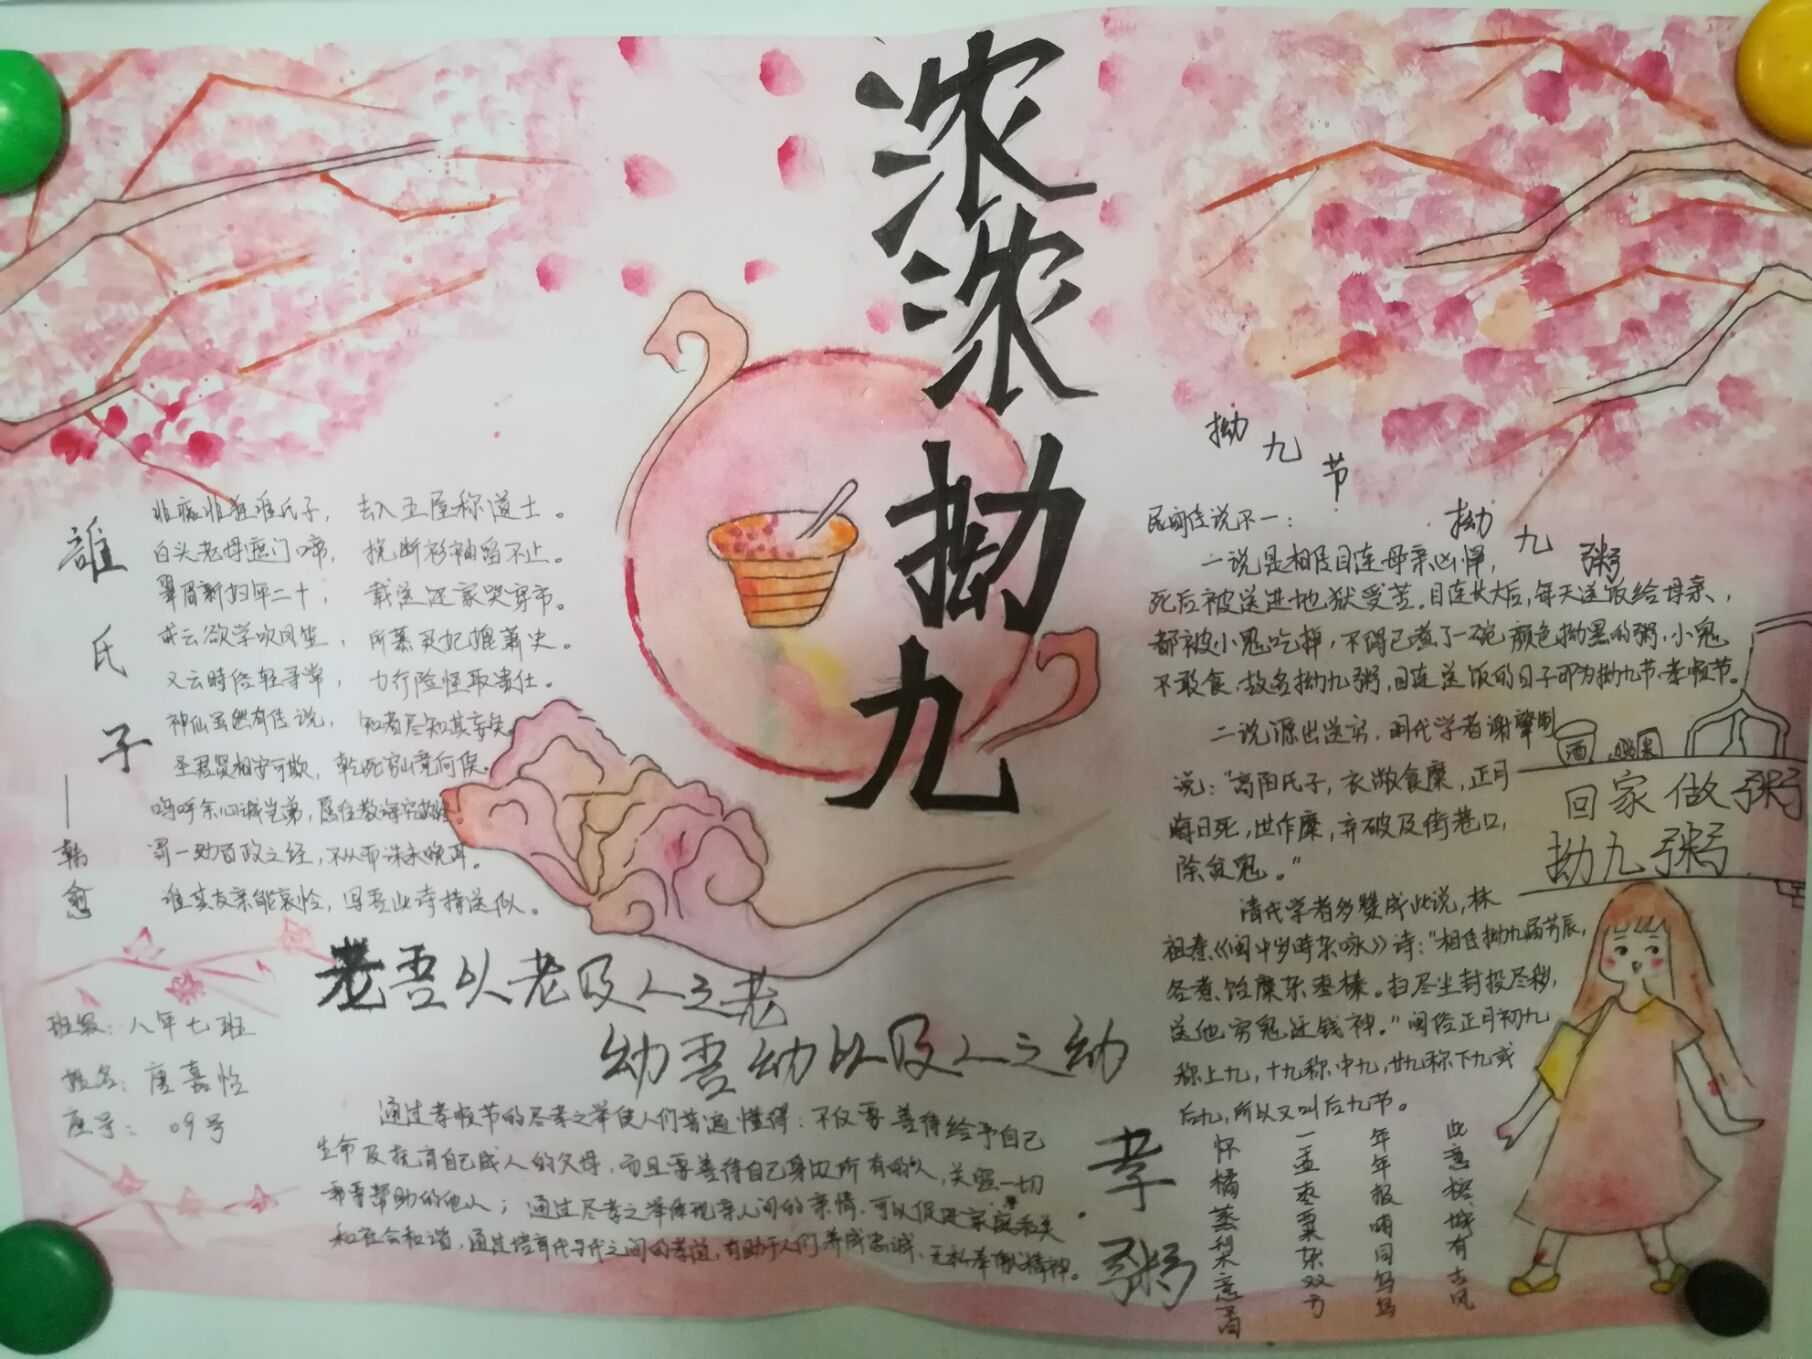 浓浓拗九
誰氏子
——韩愈
非痴非狂誰氏子， 去入王屋称道士。
白头老母遮门啼， 挽断衫袖留不止。
翠眉新妇年二十， 载送还家哭穿市。
或云欲学吹凤笙， 所慕灵妃媲萧史。
又云時俗轻寻常， 力行险怪取贵仕。
神仙虽然有传说， 知者尽知其妄矣。
圣君贤相安可欺， 乾死穷山竟何俟。
呜呼余心诚岂弟， 愿往教诲究
罚一劝百政之经，不从而诛未晚耳。
谁其友亲能哀怜，写吾此诗持送似。
班级：八年七班
姓名：唐嘉怡
座号：09号
老吾以老及人之老
幼吾幼以及人之幼
通过孝顺节的尽孝之举使人们普遍懂得：不仅要善待给予自己
生命及抚育自己成人的父母，而且要善待自己身边所有的人，关照一切
需要帮助的他人；通过尽孝之举体现亲人间的亲情，可以促进家庭和美
和社会和谐，通过培育代与代之间的孝道，有助于人们养成忠诚、无私奉献精神。
拗九节
民间传说不一：
一说是相传目连母亲凶悍，
死后被送进地狱受苦。目连长大后，每天送饭给母亲，
都被小鬼吃掉，不得已煮了一碗颜色拗黑的粥，小鬼
不敢食。故名拗九粥，目连送饭的日子即为拗九节、孝顺节。
二说源出送穷，明代学者谢肇制
说：“高阳氏子，衣敝食糜，正月
晦日死，世作糜，弃破及街巷口，
除贫鬼。”
清代学者多赞成此说，林
祖焘《闽中岁時杂咏》诗：“相传拗九届芳辰，
各煮饴糜杂枣榛。扫尽尘封投尽秽，
送他穷鬼迓钱神。”闽俗正月初九
称上九，十九称中九，廿九称下九或
后九，所以又叫后九节。
拗九粥
酒
回家做粥
拗九粥
孝粥
此意榕城有古风
年年报哺同乌鸟
一盂枣栗杂双方
怀橘蒸梨意